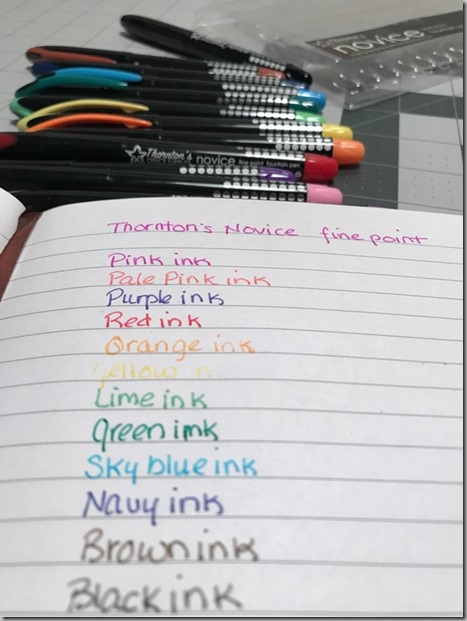 novice
Thornton's novice fine point fountain pen
Thornton's Novice fine point
Pink ink
Pale Pink ink
Purple ink
Red ink
Orange ink
Yellow
Lime ink
green imk
Sky blue ink
Navy ink
Brown ink
Black ink